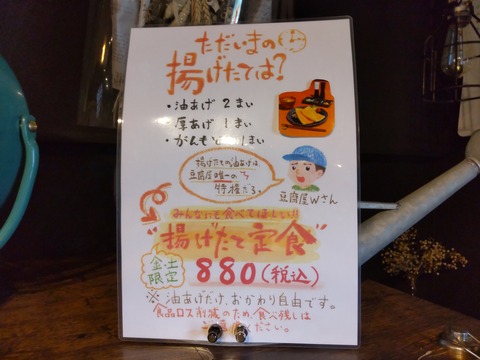 ただいまの
揚げたては?
・油あげ 2まい
・厚あげ 1まい
・がんもどき 1まい
揚げたての油あげは、
豆腐屋唯一の
特権だろ。
豆腐屋Wさん
みんなにも食べてほしい!!
"揚げたて定食"
金・土
限定
880(税込)
※油あげだけ、おかわり自由です。
食品ロス削減のため、食べ残しは
ください。